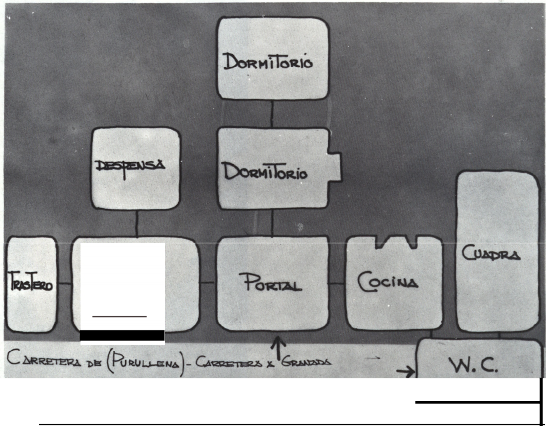 DORMITORIO
DESPENSA
DORMITORIO
TRASTERO
PORTAL
COCINA
CUADRA
CARRETERA DE (PURULLENA) - CARRETERA A GRANADA
W.C.